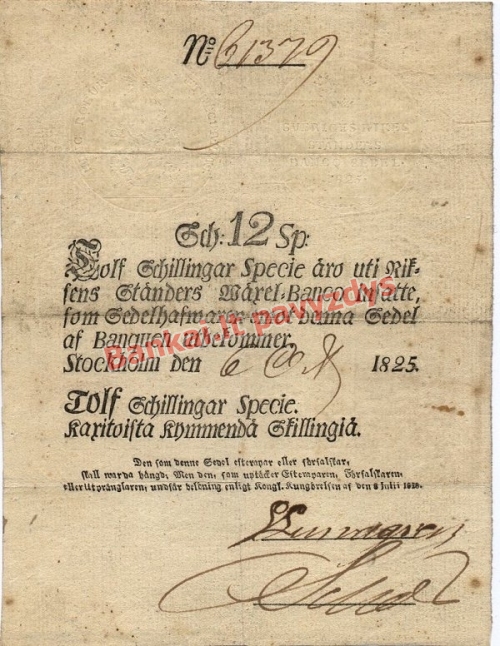 No 61379
Sch: 12 Sp:
Tolf Schillingar Specie äro uti Rik-
sens Ständers Wäxel-Banco insatte,
som Sedelhafwaren mot denna Sedel
af Banquen utbekommer,
Stockholm den 6 1825.
Tolf Schillingar Specie.
Kaxitoista Kymmendä Skillingiä.
Den som denne Sedel eftempar eller förfalskar,
skall warda hängd; Men den, som uptäcker Eftemparen, Förfalskaren
eller Utpränglaren, undfår belöning enligt Kongl. Kungörelsen af den 8 Julii 1818.
Bankai.lt pavyzdys